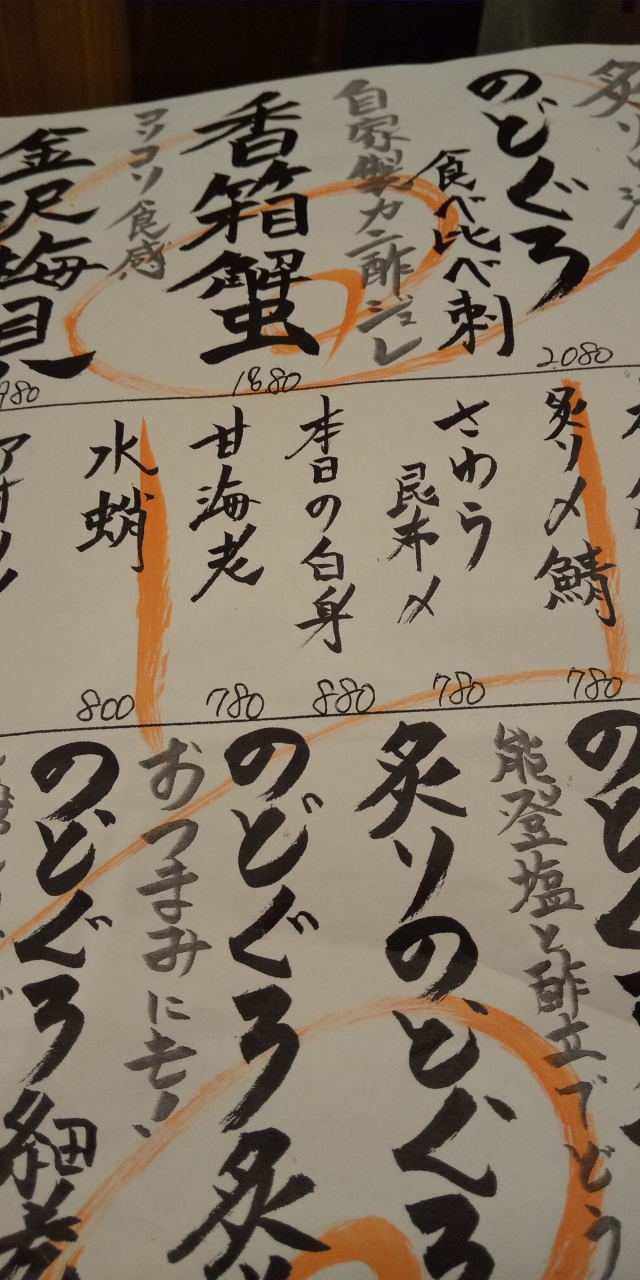 炙りと
のどぐろ
食べ比べ刺
2080
自家製カニ酢ジュレ
香箱蟹
1880
コリコリ食感
金沢梅貝
980
炙り〆鯖
780
さわら
昆布〆
780
本日の白身
880
甘海老
780
水蛸
800
のどぐろ
能登塩と酢立でどう
炙りのどぐろ
のどぐろ炙り
おつまみにも!
のどぐろ細巻